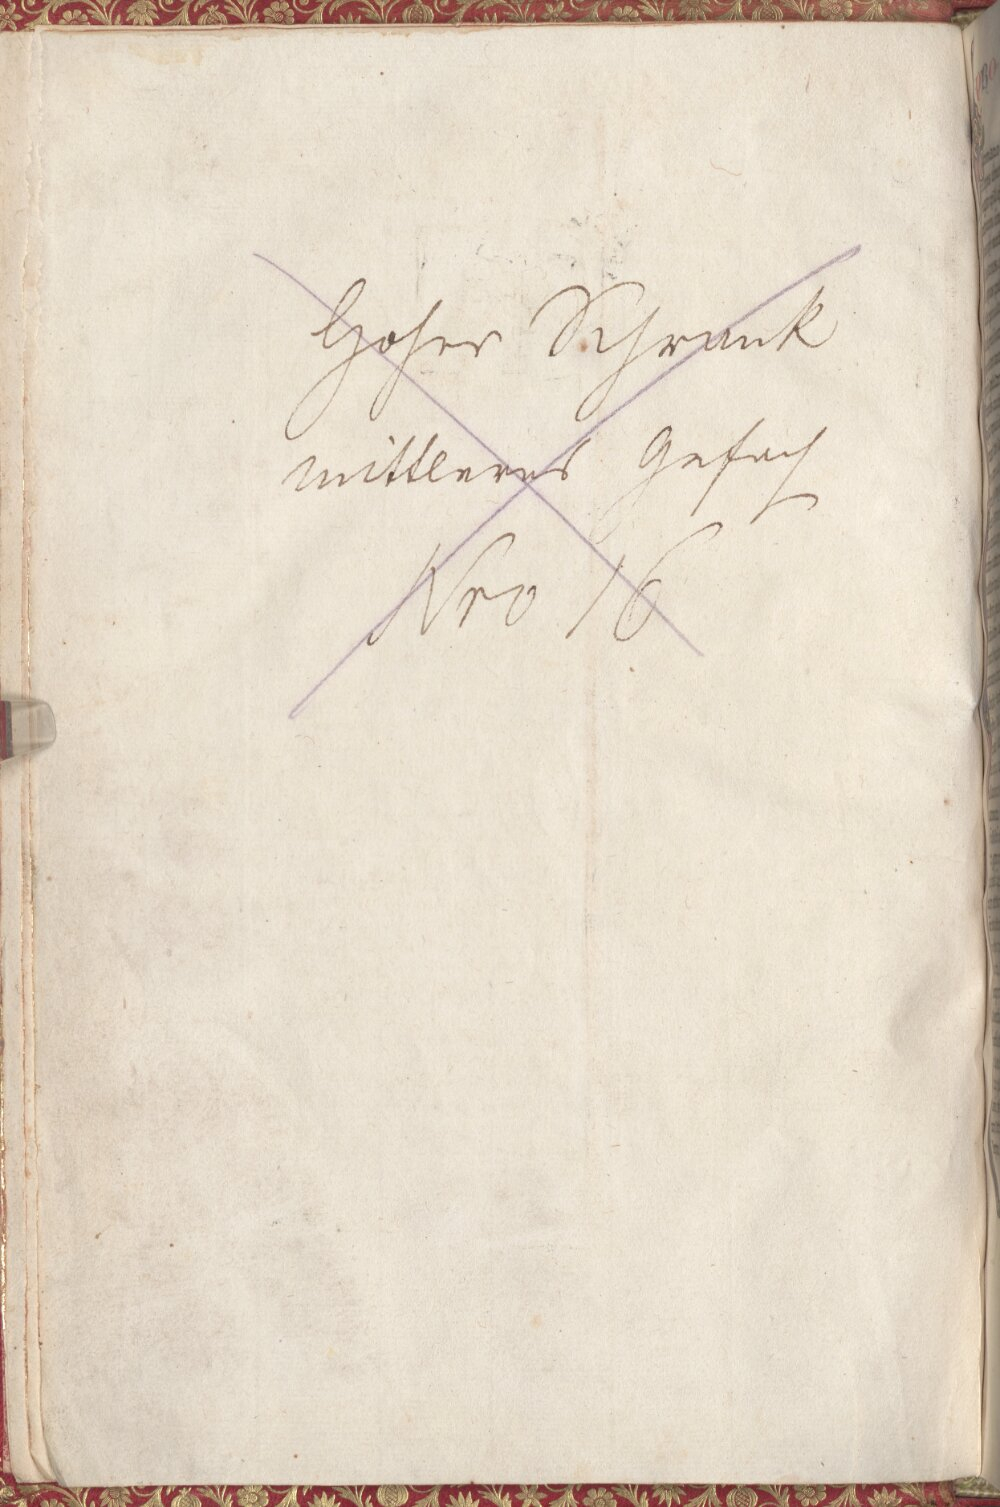 Hoher Schrank
mittleres Gefach
Nro 16